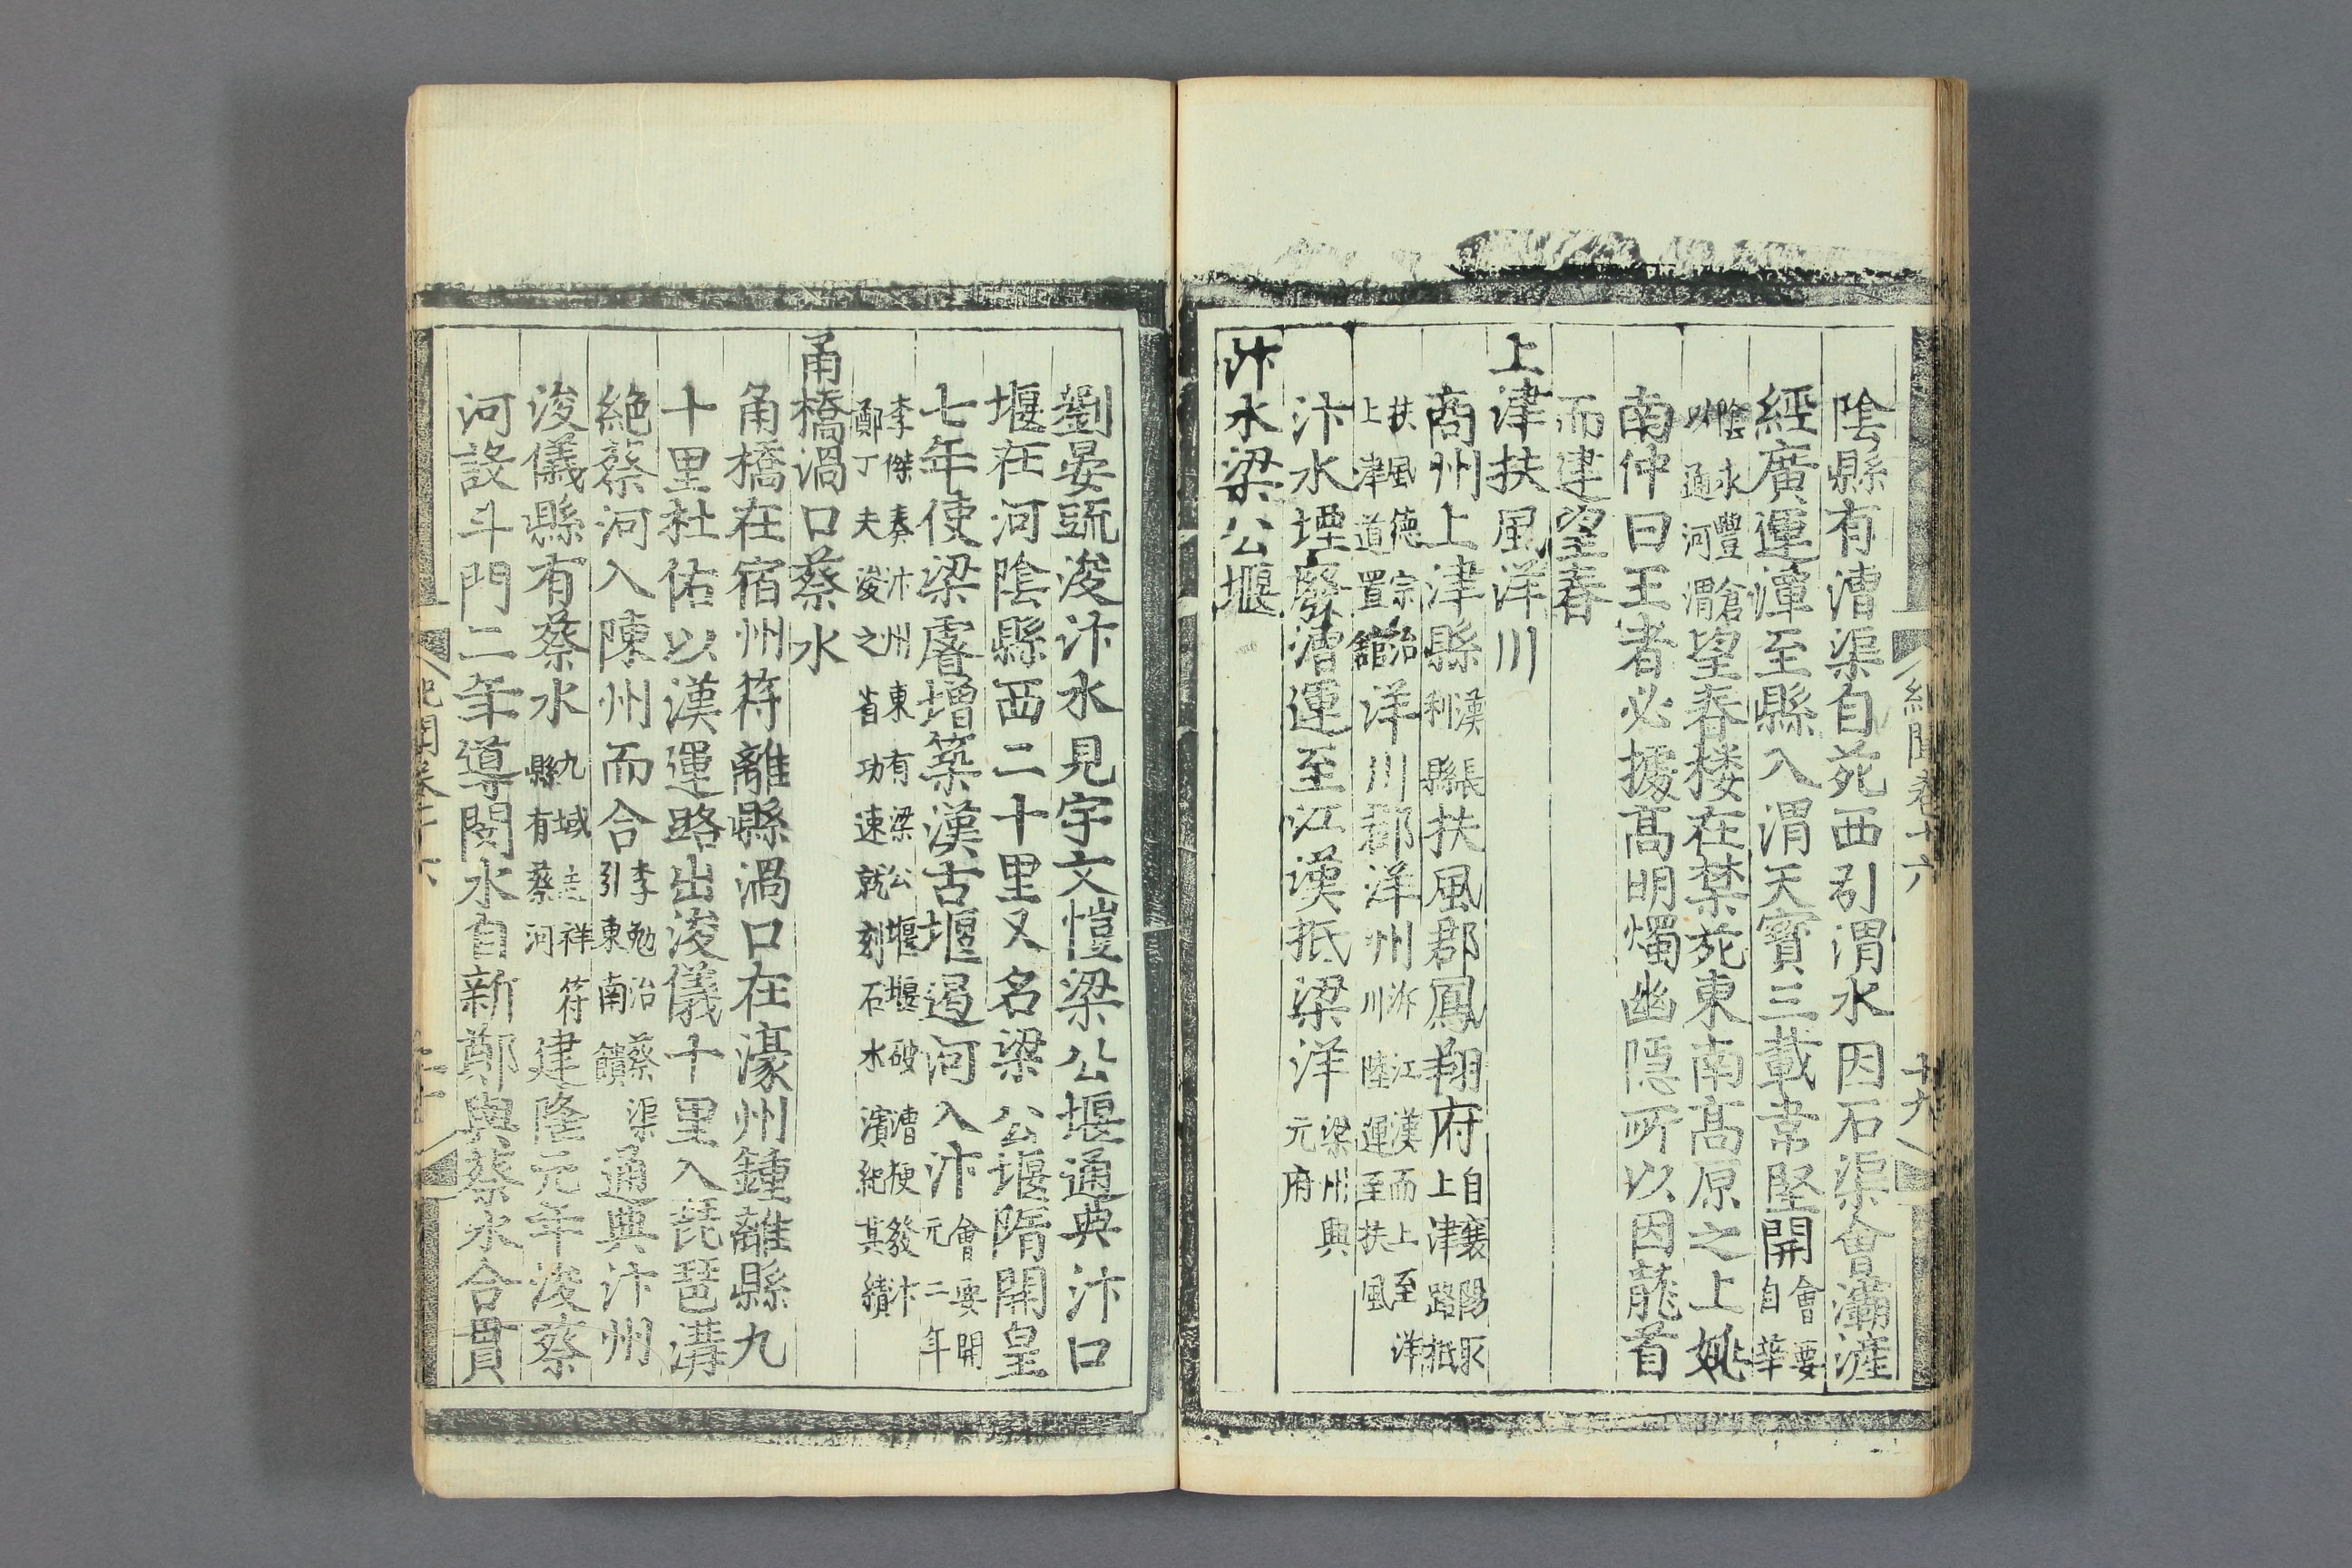 陰縣有漕渠自苑西引渭水因石渠會灞滻
經廣運潭至縣入渭天寶三載韋堅開會要自華
陰永豐倉以通河渭望春樓在禁苑東南高原之上姚
南仲曰王者必據高明燭幽隱所以因龍首
而建望春
上津扶風洋川
商州上津縣漢長利縣扶風郡鳳翔府自襄陽取上津路抵
扶風德宗治上津道置館洋川郡洋州泝江漢而上至洋川陸運至扶風
汴水堙廢漕運至江漢抵梁洋梁州興元府
汴水梁公堰
紀聞卷十六
十九
劉晏疏浚汴水見宇文愷梁公堰通典汴口
堰在河陰縣西二十里又名梁公堰隋開皇
七年使梁睿增築漢古堰遏河入汴會要開元二年
李傑奏汴州東有梁公堰堰破漕梗發汴鄭丁夫浚之省功速就刻石水濱紀其績
甬橋渦口蔡水
甬橋在宿州符離縣渦口在濠州鍾離縣九
十里杜佑以漢運路出浚儀十里入琵琶溝
絕蔡河入陳州而合李勉治蔡渠引東南饋通典汴州
浚儀縣有蔡水九域志祥符縣有蔡河建隆元年浚蔡
河設斗門二年導閔水自新鄭與蔡水合貫
紀聞卷十六